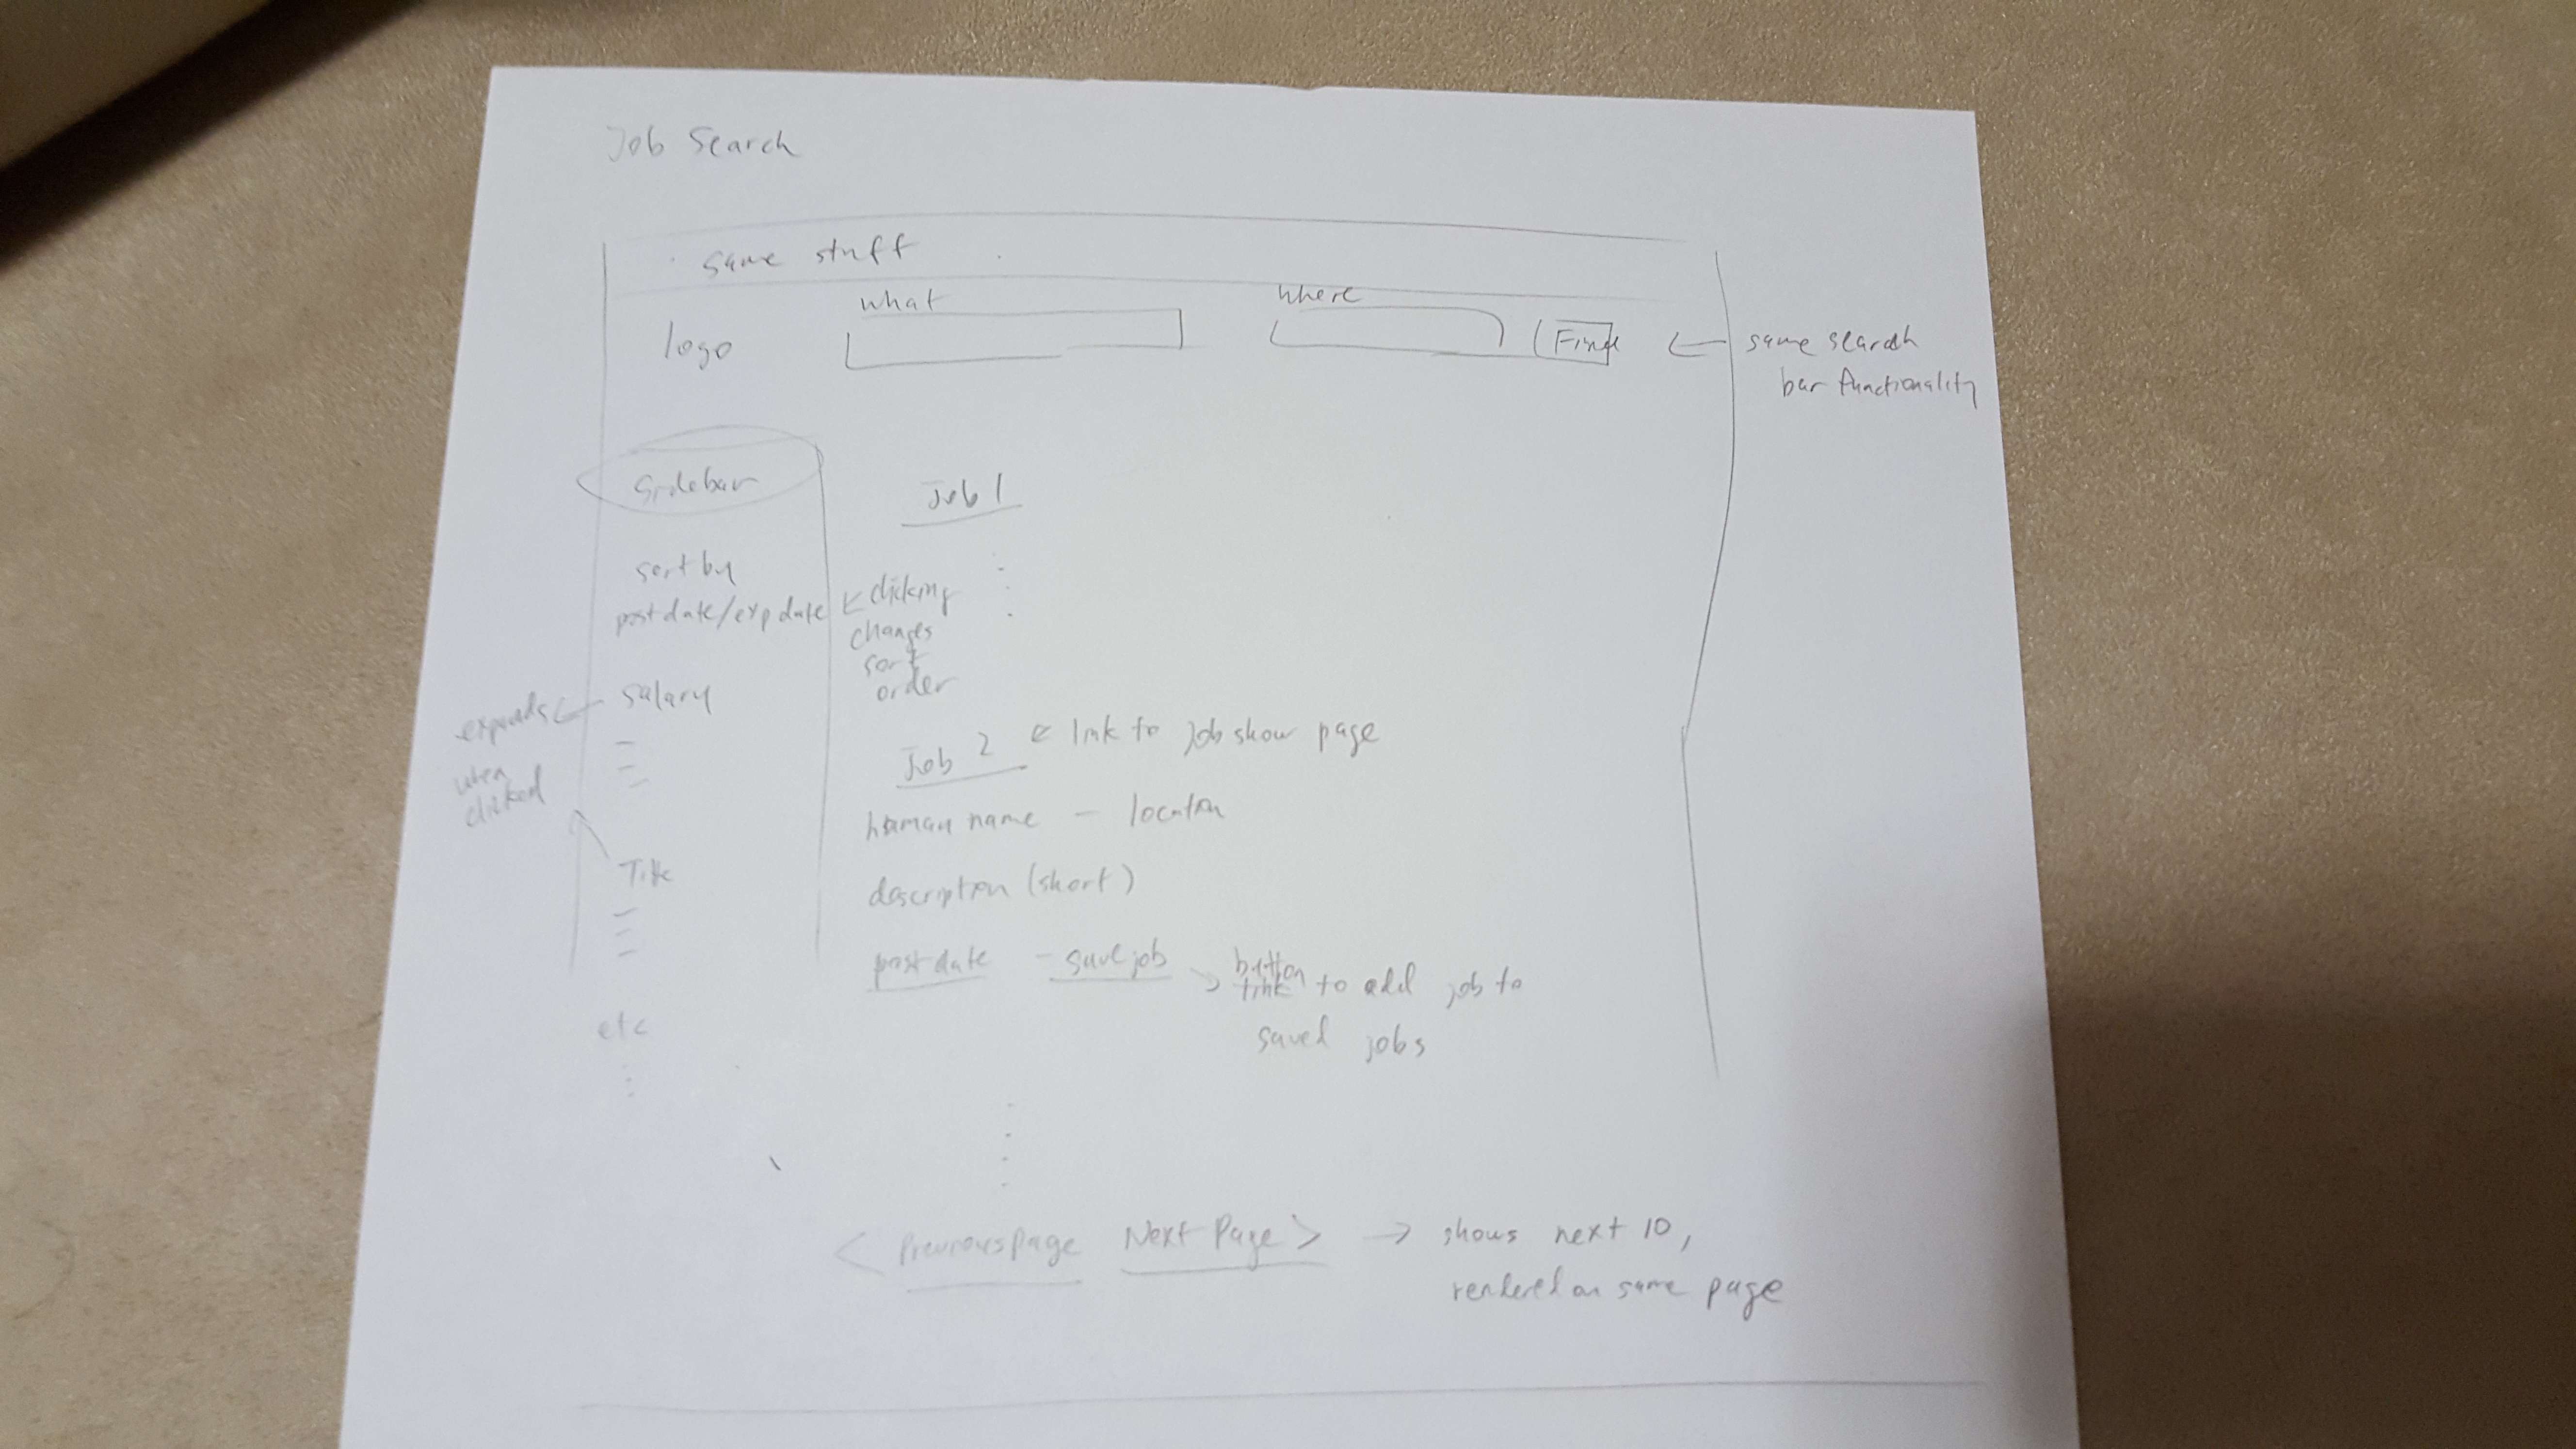 Job Search
same stuff
what
where
logo
Find
same search
bar functionality
Sidebar
Job 1
sort by
post date/exp date
clicking
changes
sort
order
salary
expands
when
clicked
Job 2
link to job show page
human name - location
description (short)
Title
post date - save job
button
link to add job to
saved jobs
etc
< Previous page Next Page >
shows next 10,
rendered on same page